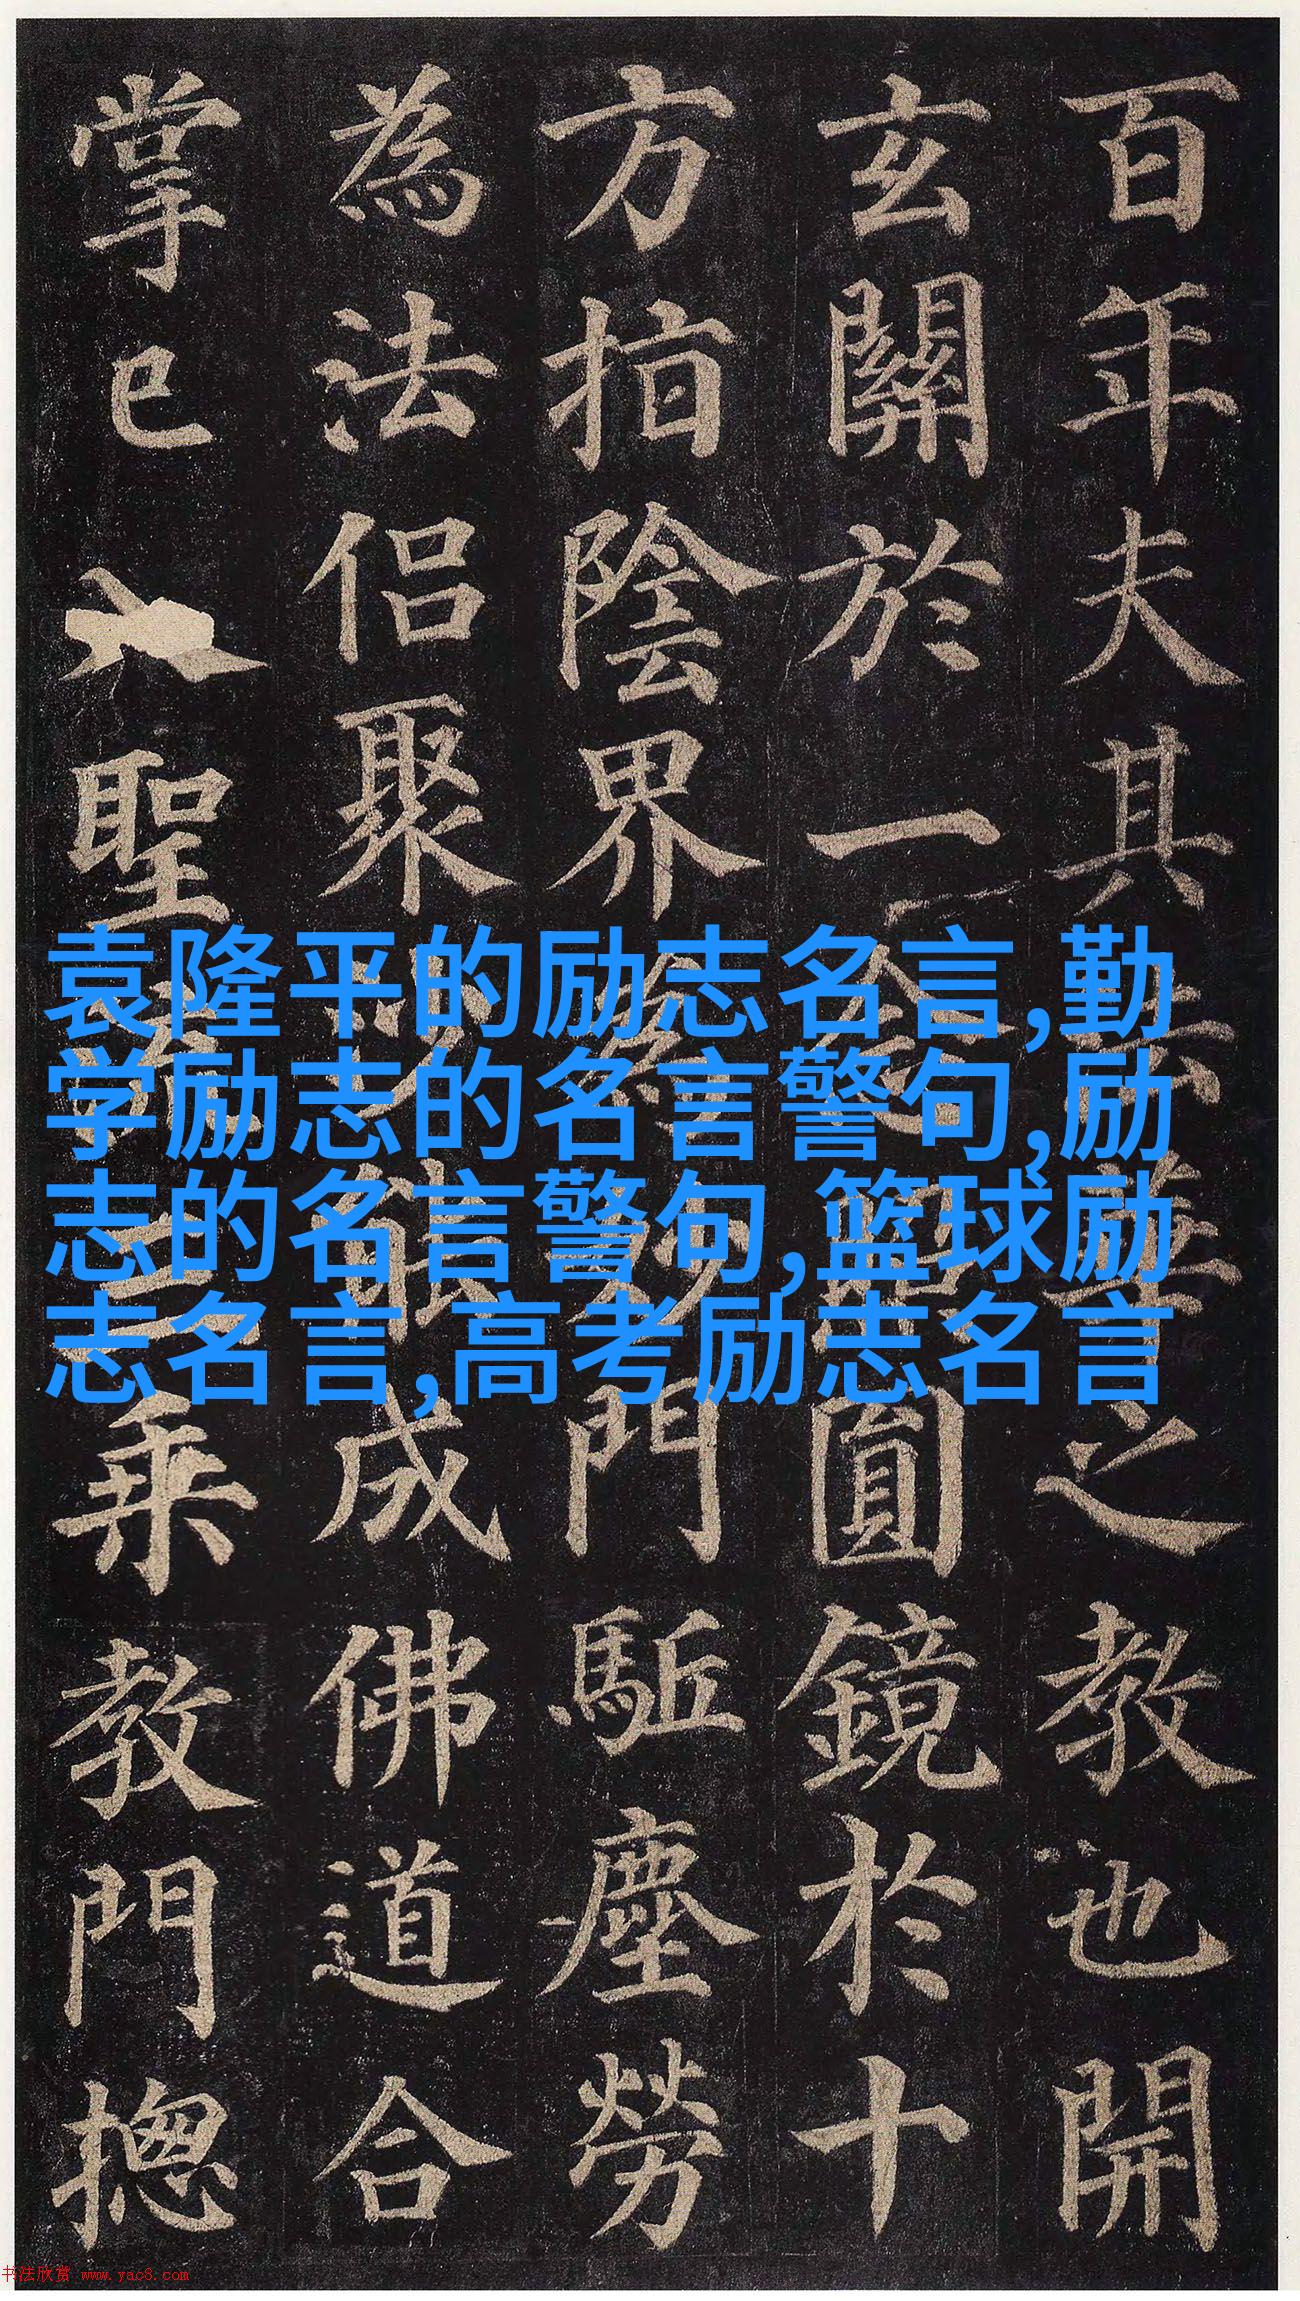 百年夫其法華之教也開
玄關於一念圓鏡於十
方指陰界為妙門駈塵勞
為法侶聚沙能成佛道合
掌已聖三乘教門揔
袁隆平的励志名言,勤
学励志的名言警句,励
志的名言警句,篮球励
志名言,高考励志名言
书法欣赏 www.yac8.com